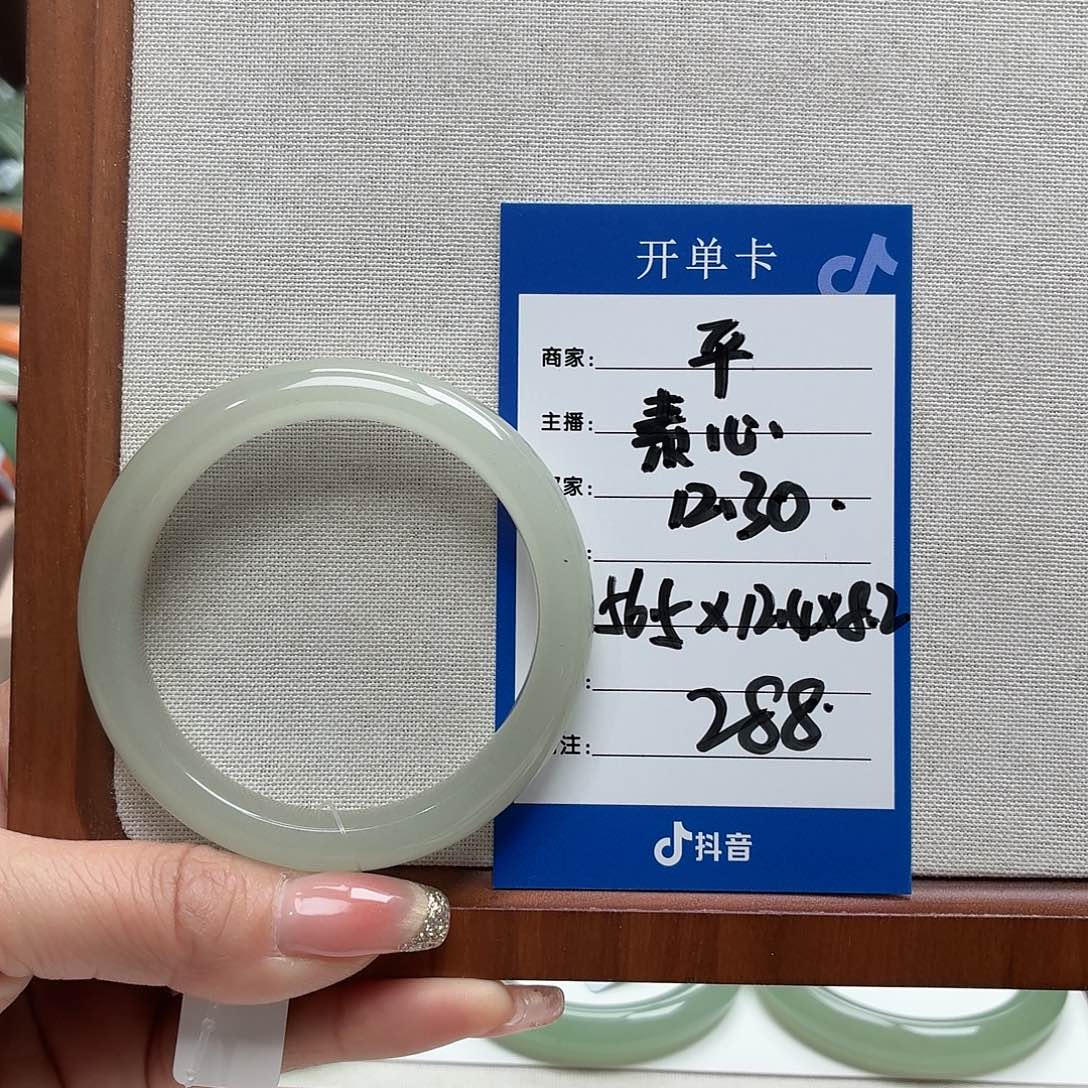 开单卡
商家: 平
主播: 素心.
家: 12.30.
:
56.5×12.4×8.2
: 288.
注:
抖音